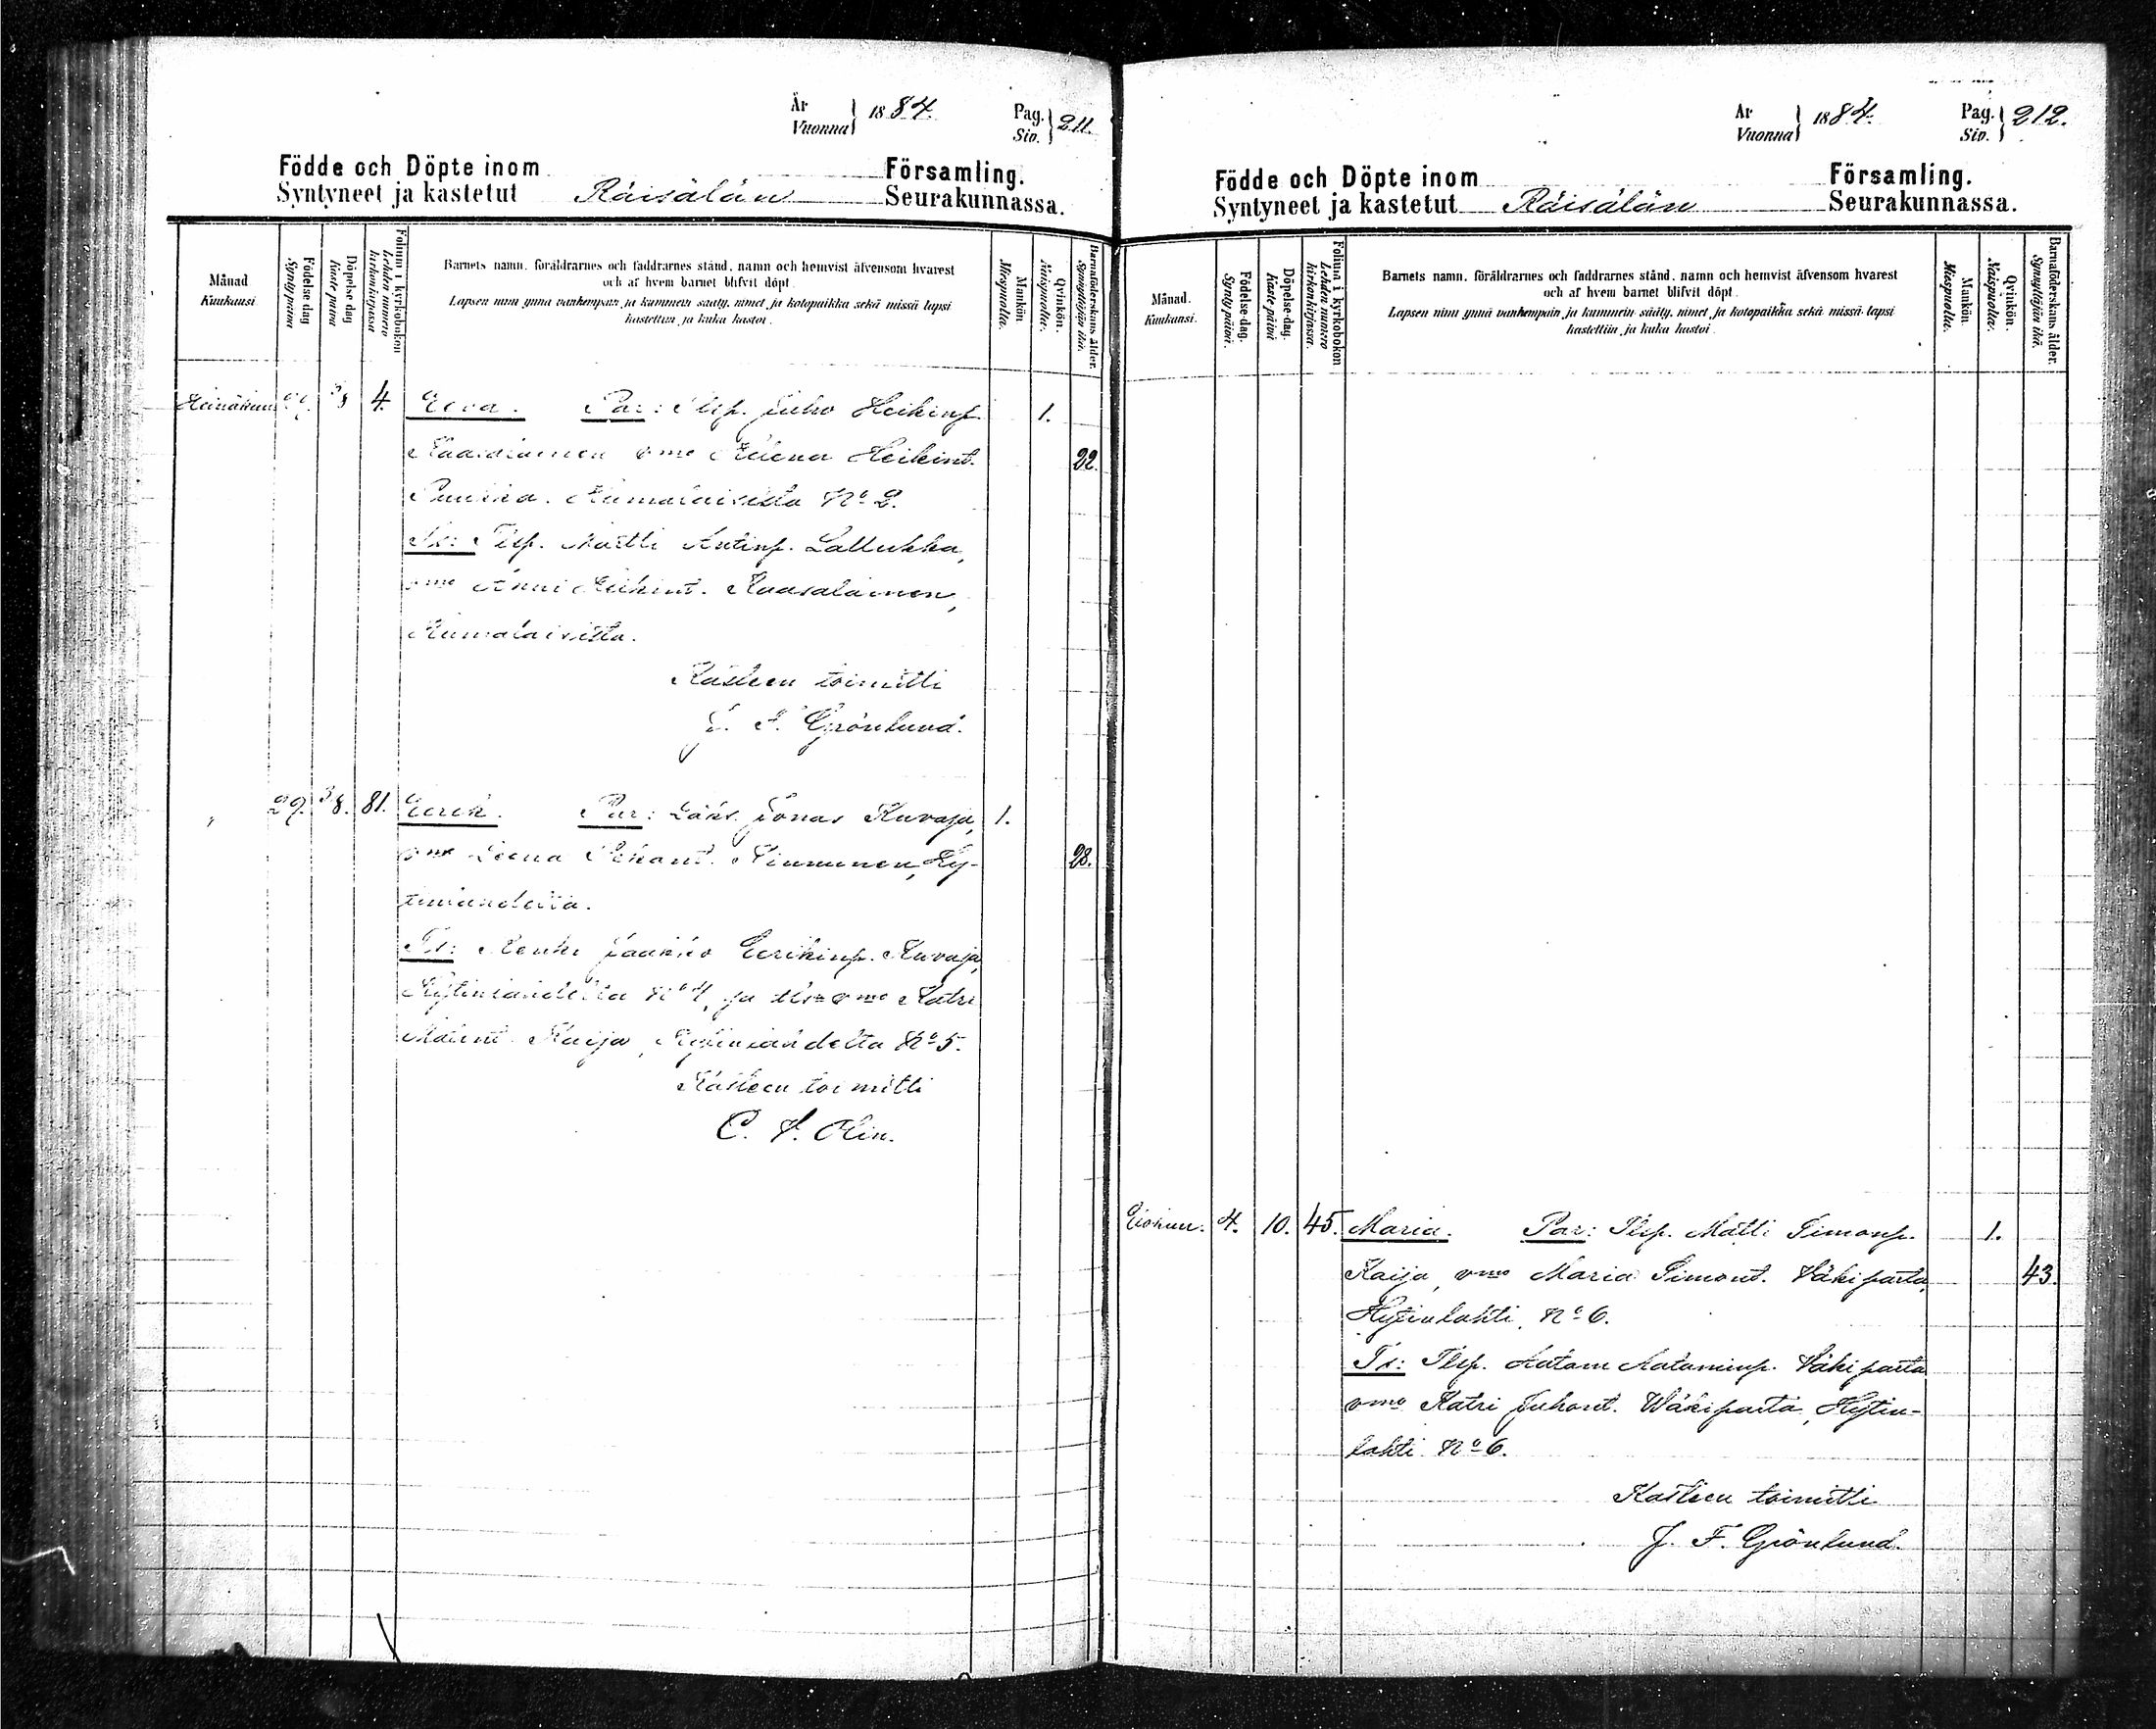 År
Vuonna } 1884.
Pag.
Siv. } 211.
Födde och Döpte inom Församling.
Syntyneet ja kastetut Räisälän Seurakunnassa.
Månad
Kuukausi
Födelse-dag
Syntypäivä
Döpelse-dag
Kaste päivä
Folium i kyrkobokon
Lehden numero kirkonkirjassa
Barnets namn, föräldrarnes och faddrarnes stånd, namn och hemvist äfvensom hvarest
och af hvem barnet blifvit döpt.
Lapsen nimi ynnä vanhempain ja kummein sääty, nimet ja kotopaikka sekä missä lapsi
kastettiin ja kuka kastoi.
Mankön
Miespuolia.
Qvinkön.
Naispuolia.
Barnaföderskans ålder.
Synnyttäjän ikä.
Heinäkuu 3/8 4. Eeva. Par: Tlsp. Juho Heikinp. 1.
Kaasalainen vmo Heikint. 22.
No 2.
Ts: Tlsp. Martti Antinp. Lallukka,
vmo Anni Heikint. Kaasalainen,
Kasteen toimitti
J. F. Grönlund.
" 29. 3/8. 81. Eerik. Par: Jonas Kuvaja, 1.
vmo Leena Kinnunen, Hy- 28.
tinlahdella.
Ts: Renki Jaakko Eerikinp. Kuvaja,
Hytinlahdelta No 4, ja vmo Katri
Matint. Kaija, Hytinlahdelta No 5.
Kasteen toimitti
C. F. Olin.
År
Vuonna } 1884.
Pag.
Siv. } 212.
Födde och Döpte inom Församling.
Syntyneet ja kastetut Räisälän Seurakunnassa.
Månad.
Kuukausi.
Födelse-dag.
Synty päivä.
Döpelse-dag.
Kaste päivä
Folium i kyrkobokon
Lehden numero kirkonkirjassa.
Barnets namn, föräldrarnes och faddrarnes stånd, namn och hemvist äfvensom hvarest
och af hvem barnet blifvit döpt.
Lapsen nimi ynnä vanhempain ja kummein sääty, nimet ja kotopaikka sekä missä lapsi
kastettiin ja kuka kastoi.
Mankön.
Miespuolia.
Qvinkön.
Naispuolia.
Barnaföderskans ålder.
Synnyttäjän ikä.
Elokuu. 4. 10. 45. Maria. Par: Tlsp. Matti Simonp. 1.
Kaija, vmo Maria Simont. Väkiparta, 43.
Hytinlahti, No 6.
Ts: Tlsp. Aatam Aataminp. Väkiparta
vmo Katri Juhont. Wäkiparta, Hytin-
lahti No 6.
Kasteen toimitti
J. F. Grönlund.